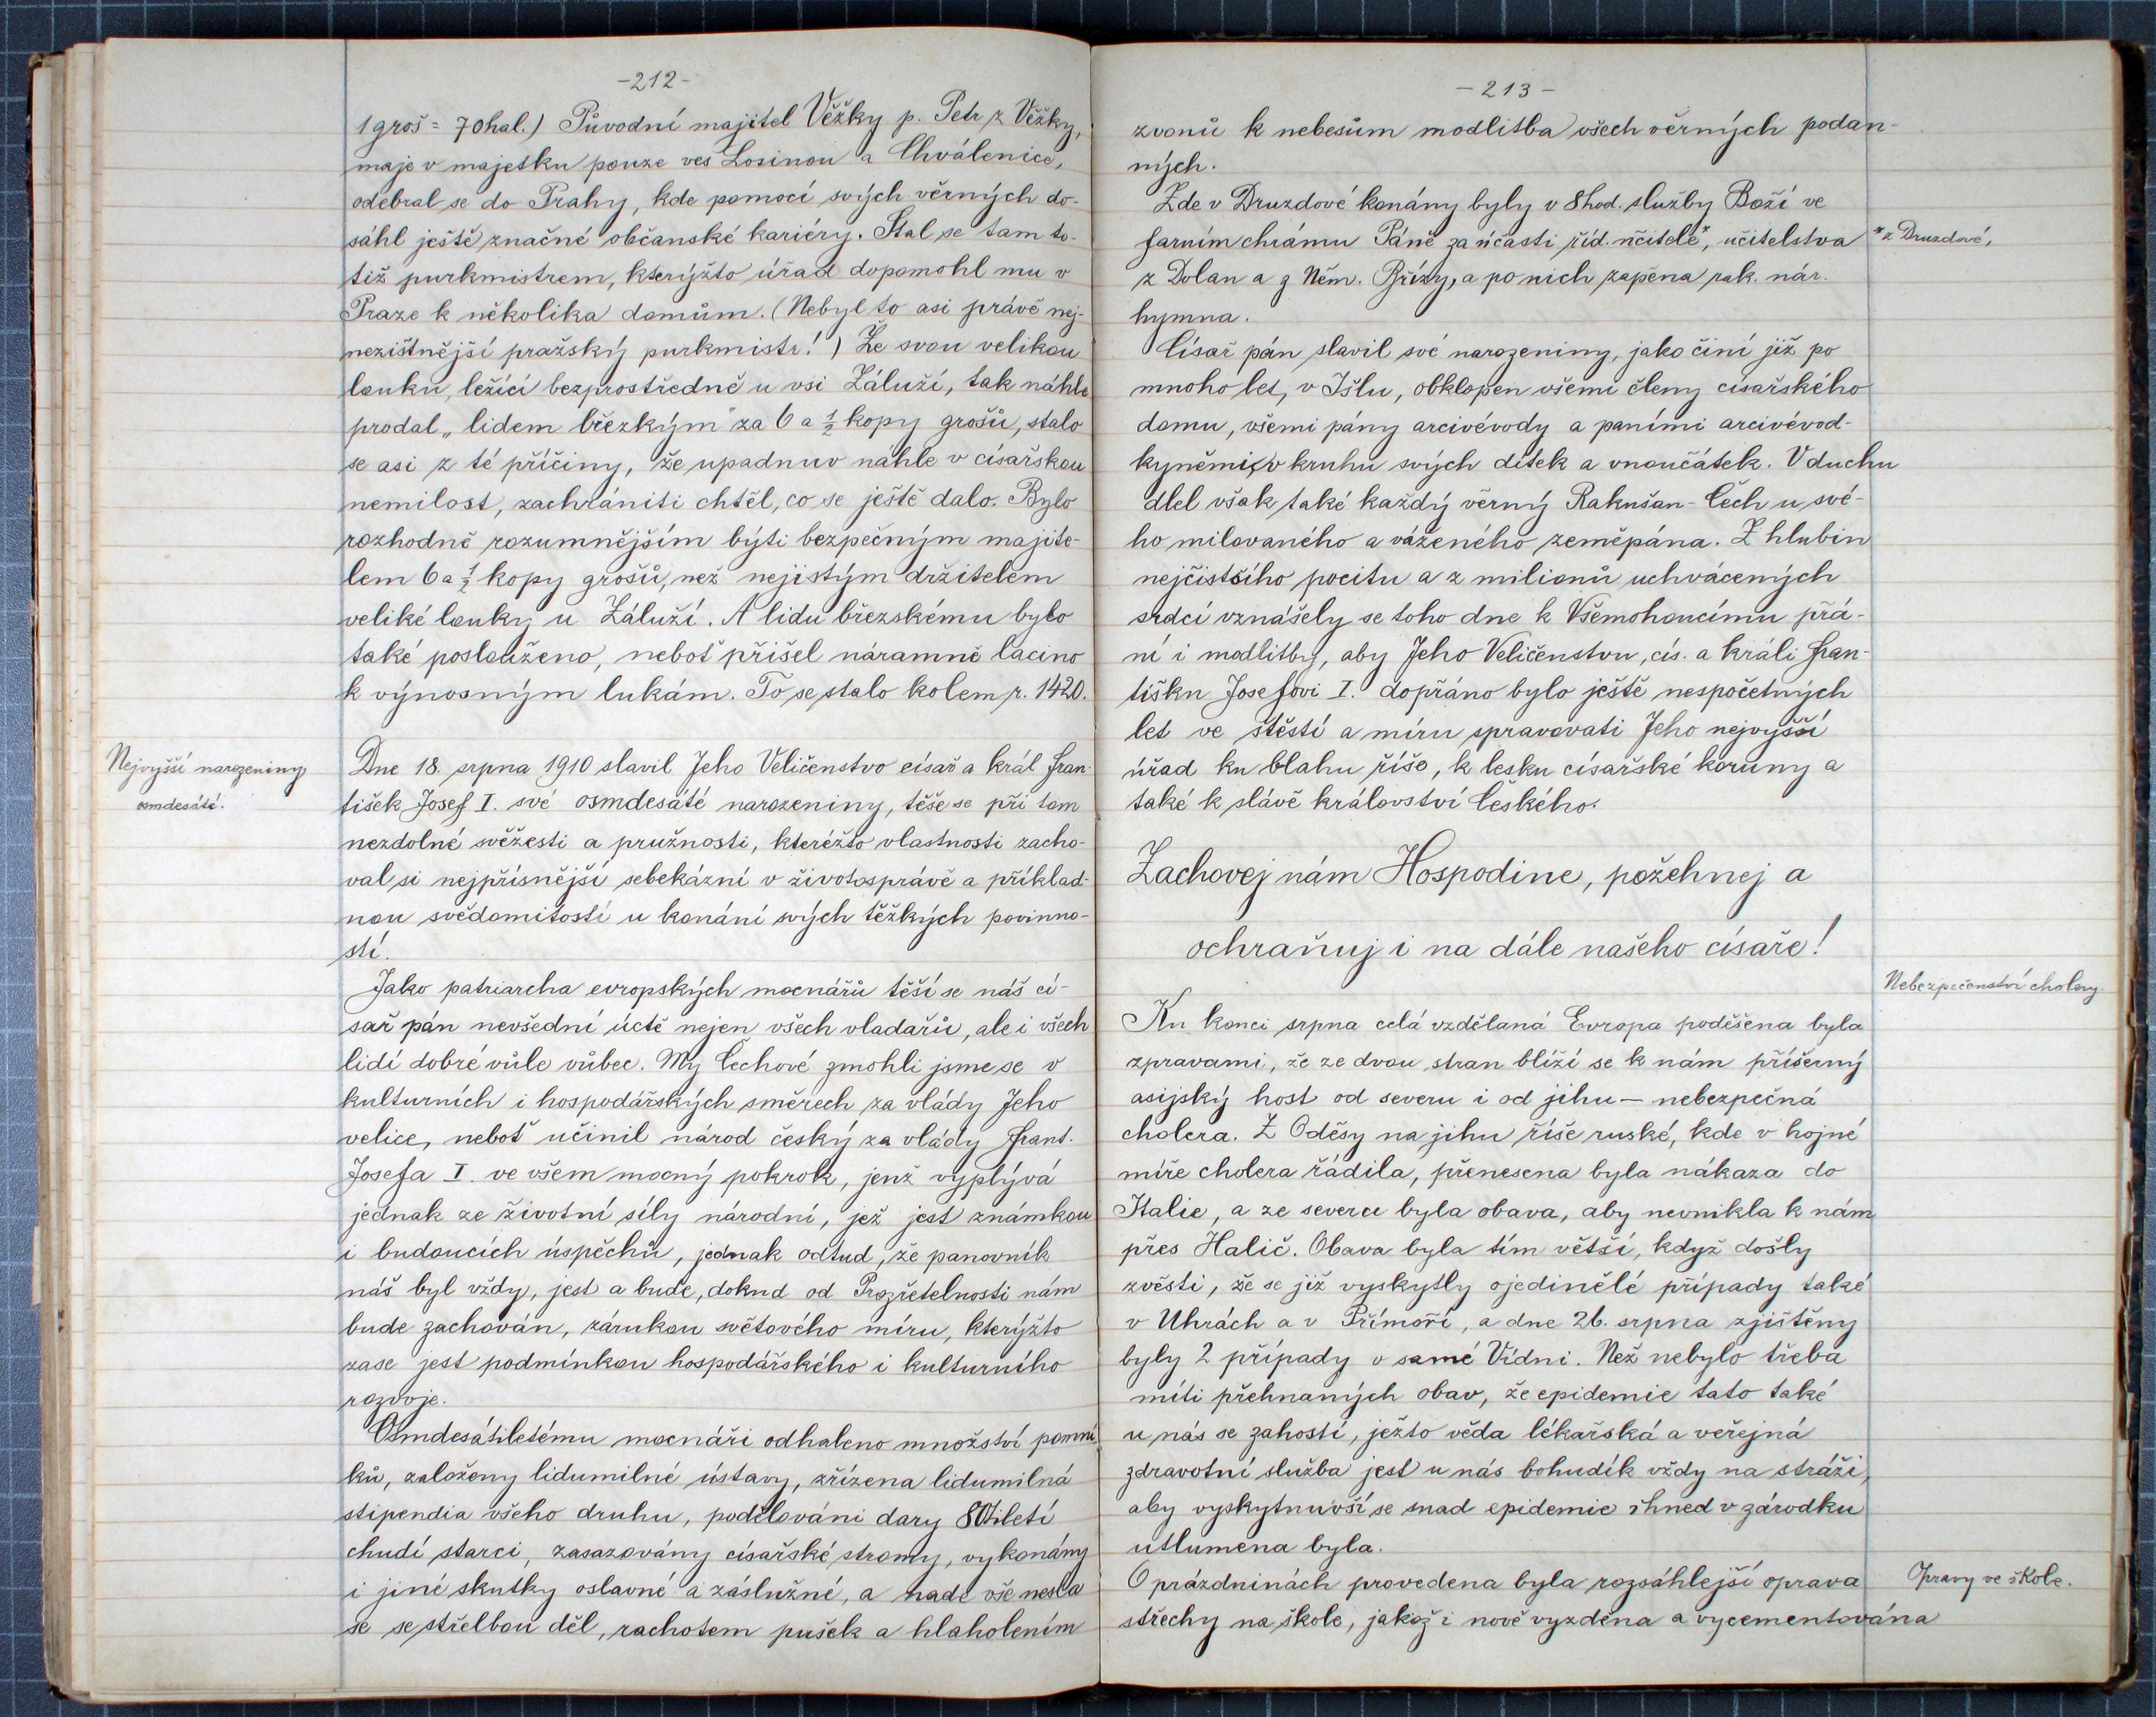 -212-
1 groš = 70 hal.) Původní majitel Věžky p. Petr z Věžky,
maje v majetku pouze ves Losinou a Chválenice,
odebral se do Prahy, kde pomocí svých věrných do-
sáhl ještě značné občanské kariéry. Stal se tam to-
tiž purkmistrem, kterýžto úřad dopomohl mu v
Praze k několika domům. (Nebyl to asi právě nej-
nezištnější pražský purkmistr!) Že svou velikou
louku, ležící bezprostředně u vsi Záluží, tak náhle
prodal „lidem břězkým" za 6 a ½ kopy grošů, stalo
se asi z té příčiny, že upadnuv náhle v císařskou
nemilost, zachrániti chtěl, co se ještě dalo. Bylo
rozhodně rozumnějším býti bezpečným majite-
lem 6 a ½ kopy grošů, než nejistým držitelem
veliké louky u Záluží. A lidu březskému bylo
také poslouženo, neboť přišel náramně lacino
k výnosným lukám. To se stalo kolem r. 1420.
Nejvyšší narozeniny
osmdesáté.
Dne 18. srpna 1910 slavil Jeho Veličenstvo císař a král Fran-
tišek Josef I. své osmdesáté narozeniny, těše se při tom
nezdolné svěžesti a pružnosti, kteréžto vlastnosti zacho-
val si nejpřísnější sebekázní v životosprávě a příklad-
nou svědomitostí u konání svých těžkých povinno-
stí.
Jako patriarcha evropských mocnářů těší se náš cí-
sař pán nevšední úctě nejen všech vladařů, ale i všech
lidí dobré vůle vůbec. My Čechové zmohli jsme se v
kulturních i hospodářských směrech za vlády Jeho
velice, neboť učinil národ český za vlády Frant.
Josefa I. ve všem mocný pokrok, jenž vyplývá
jednak ze životní síly národní, jež jest známkou
i budoucích úspěchů, jednak odtud, že panovník
náš byl vždy, jest a bude, dokud od Prozřetelnosti nám
bude zachován, zárukou světového míru, kterýžto
zase jest podmínkou hospodářského i kulturního
rozvoje.
Osmdesátiletému mocnáři odhaleno množství pomní
ků, založeny lidumilné ústavy, zřízena lidumilná
stipendia všeho druhu, podělováni dary 80tiletí
chudí starci, zasazovány císařské stromy, vykonány
i jiné skutky oslavné a záslužné, a nade vše nesla
se se střelbou děl, rachotem pušek a hlaholením
-213-
zvonů k nebesům modlitba všech věrných podan-
ných.
Zde v Druzdové konány byly v 8 hod. služby Boží ve
farním chrámu Páně za účasti říd. učitele*, učitelstva
* z Druzdové,
z Dolan a z Něm. Břízy, a po nich zapěna rak. nár.
hymna.
Císař pán slavil své narozeniny, jako činí již po
mnoho let, v Išlu, obklopen všemi členy císařského
domu, všemi pány arcivévody a paními arcivévod-
kyněmi, v kruhu svých dítek a vnoučátek. V duchu
dlel však také každý věrný Rakušan-Čech u své-
ho milovaného a váženého zeměpána. Z hlubin
nejčistšího pocitu a z milionů uchvácených
srdcí vznášely se toho dne k Všemohoucímu přá-
ní i modlitby, aby Jeho Veličenstvu, cís. a králi Fran-
tišku Josefovi I. dopřáno bylo ještě nespočetných
let ve štěstí a míru spravovati Jeho nejvyšší
úřad ku blahu říše, k lesku císařské koruny a
také k slávě království Českého.
Zachovej nám Hospodine, požehnej a
ochraňuj i na dále našeho císaře!
Nebezpečenství cholery.
Ku konci srpna celá vzdělaná Evropa poděšena byla
zpravami, že ze dvou stran blíží se k nám příšerný
asijský host od severu i od jihu — nebezpečná
cholera. Z Oděsy na jihu říše ruské, kde v hojné
míře cholera řádila, přenesena byla nákaza do
Italie, a ze severu byla obava, aby nevnikla k nám
přes Halič. Obava byla tím větší, když došly
zvěsti, že se již vyskytly ojedinělé případy také
v Uhrách a v Přímoří, a dne 26. srpna zjištěny
byly 2 případy v samé Vídni. Než nebylo třeba
míti přehnaných obav, že epidemie tato také
u nás se zahostí, ježto věda lékařská a veřejná
zdravotní služba jest u nás bohudík vždy na stráži,
aby vyskytnuvší se snad epidemie ihned v zárodku
utlumena byla.
O prázdninách provedena byla rozsáhlejší oprava
Opravy ve škole.
střechy na škole, jakož i nově vyzděna a vycementována